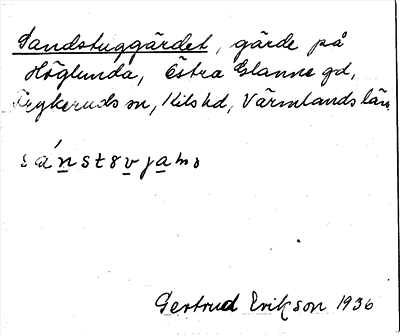 Sandstuggärdet, gärde på
Höglunda, Östra Glänne gd,
Frykeruds sn, Kils hd, Värmlands län
Gertrud Erikson 1936